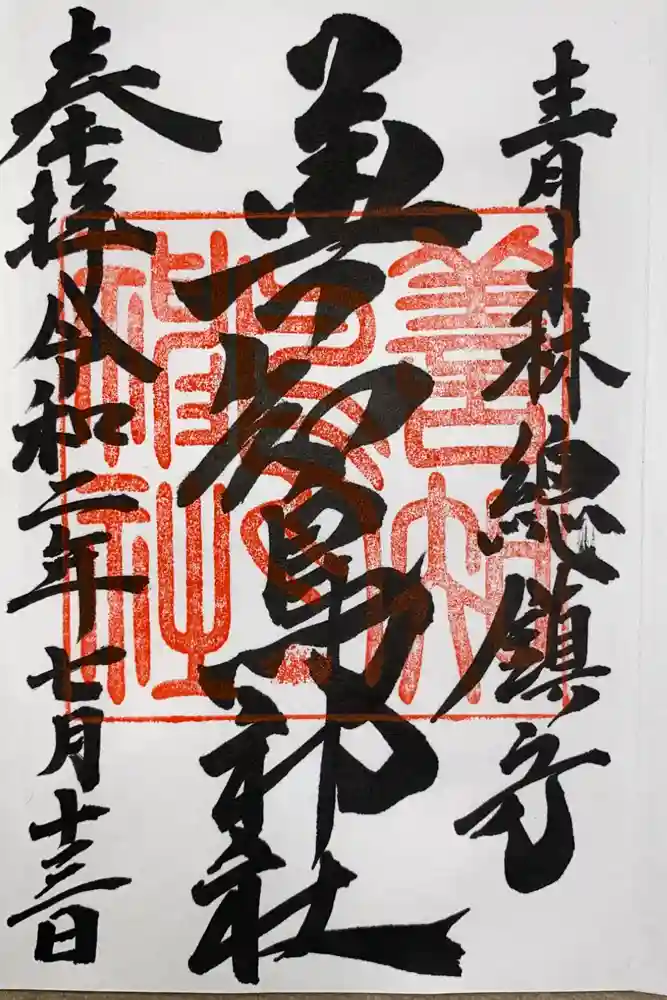 青森總鎮守
善知鳥神社
奉拝令和二年七月十三日
善知
鳥
神社